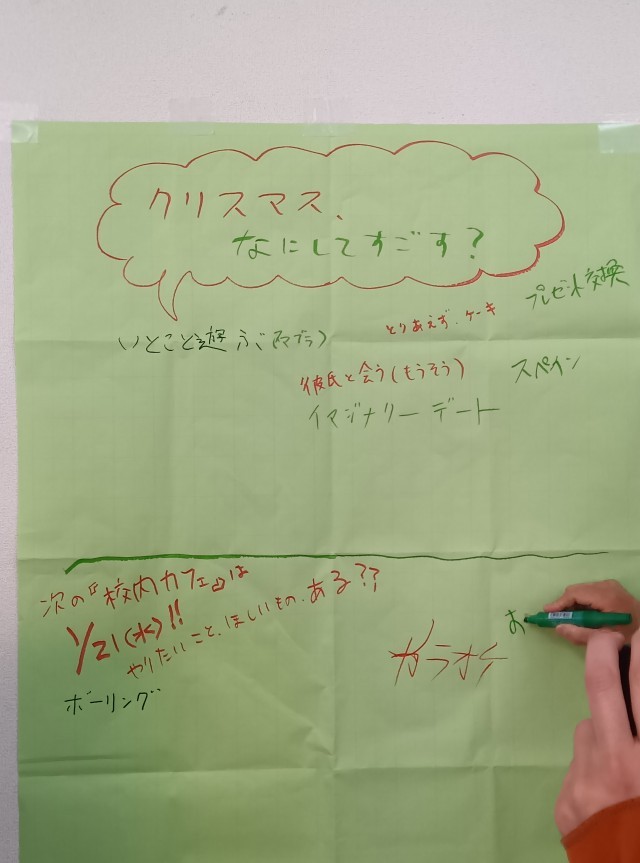 クリスマス、
なにしてすごす?
プレゼント交換
とりあえず、ケーキ
いとこと遊ぶ(スマブラ)
スペイン
彼氏と会う(もうそう)
イマジナリーデート
次の『校内カフェ』は
1/21(水)!!
やりたいこと、ほしいもの、ある??
カラオケ
お
ボーリング